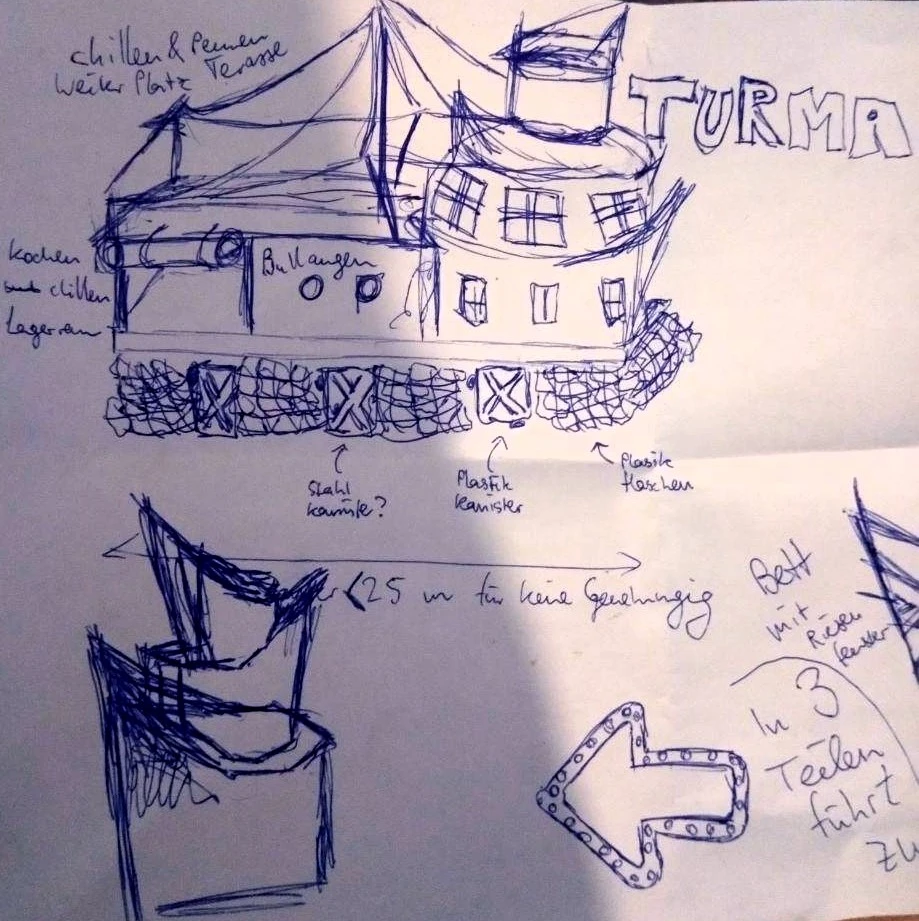 chillen & Pennen
weiter Platz Terasse
TURMA
kochen
und chillen
Lagerraum
Bullaugen
Stahl
kanister?
Plastik
kanister
Plastik
flaschen
<25 m für keine Genehmigig
Bett
mit
Riesen
fenster
In 3
Teilen
führt
zu